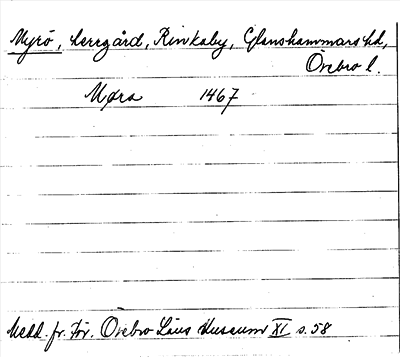 Myrö, herrgård, Rinkaby, Glanshammars hd,
Örebro l.
Myra 1467
Medd. fr. För. Örebro Läns Museum XI s. 58